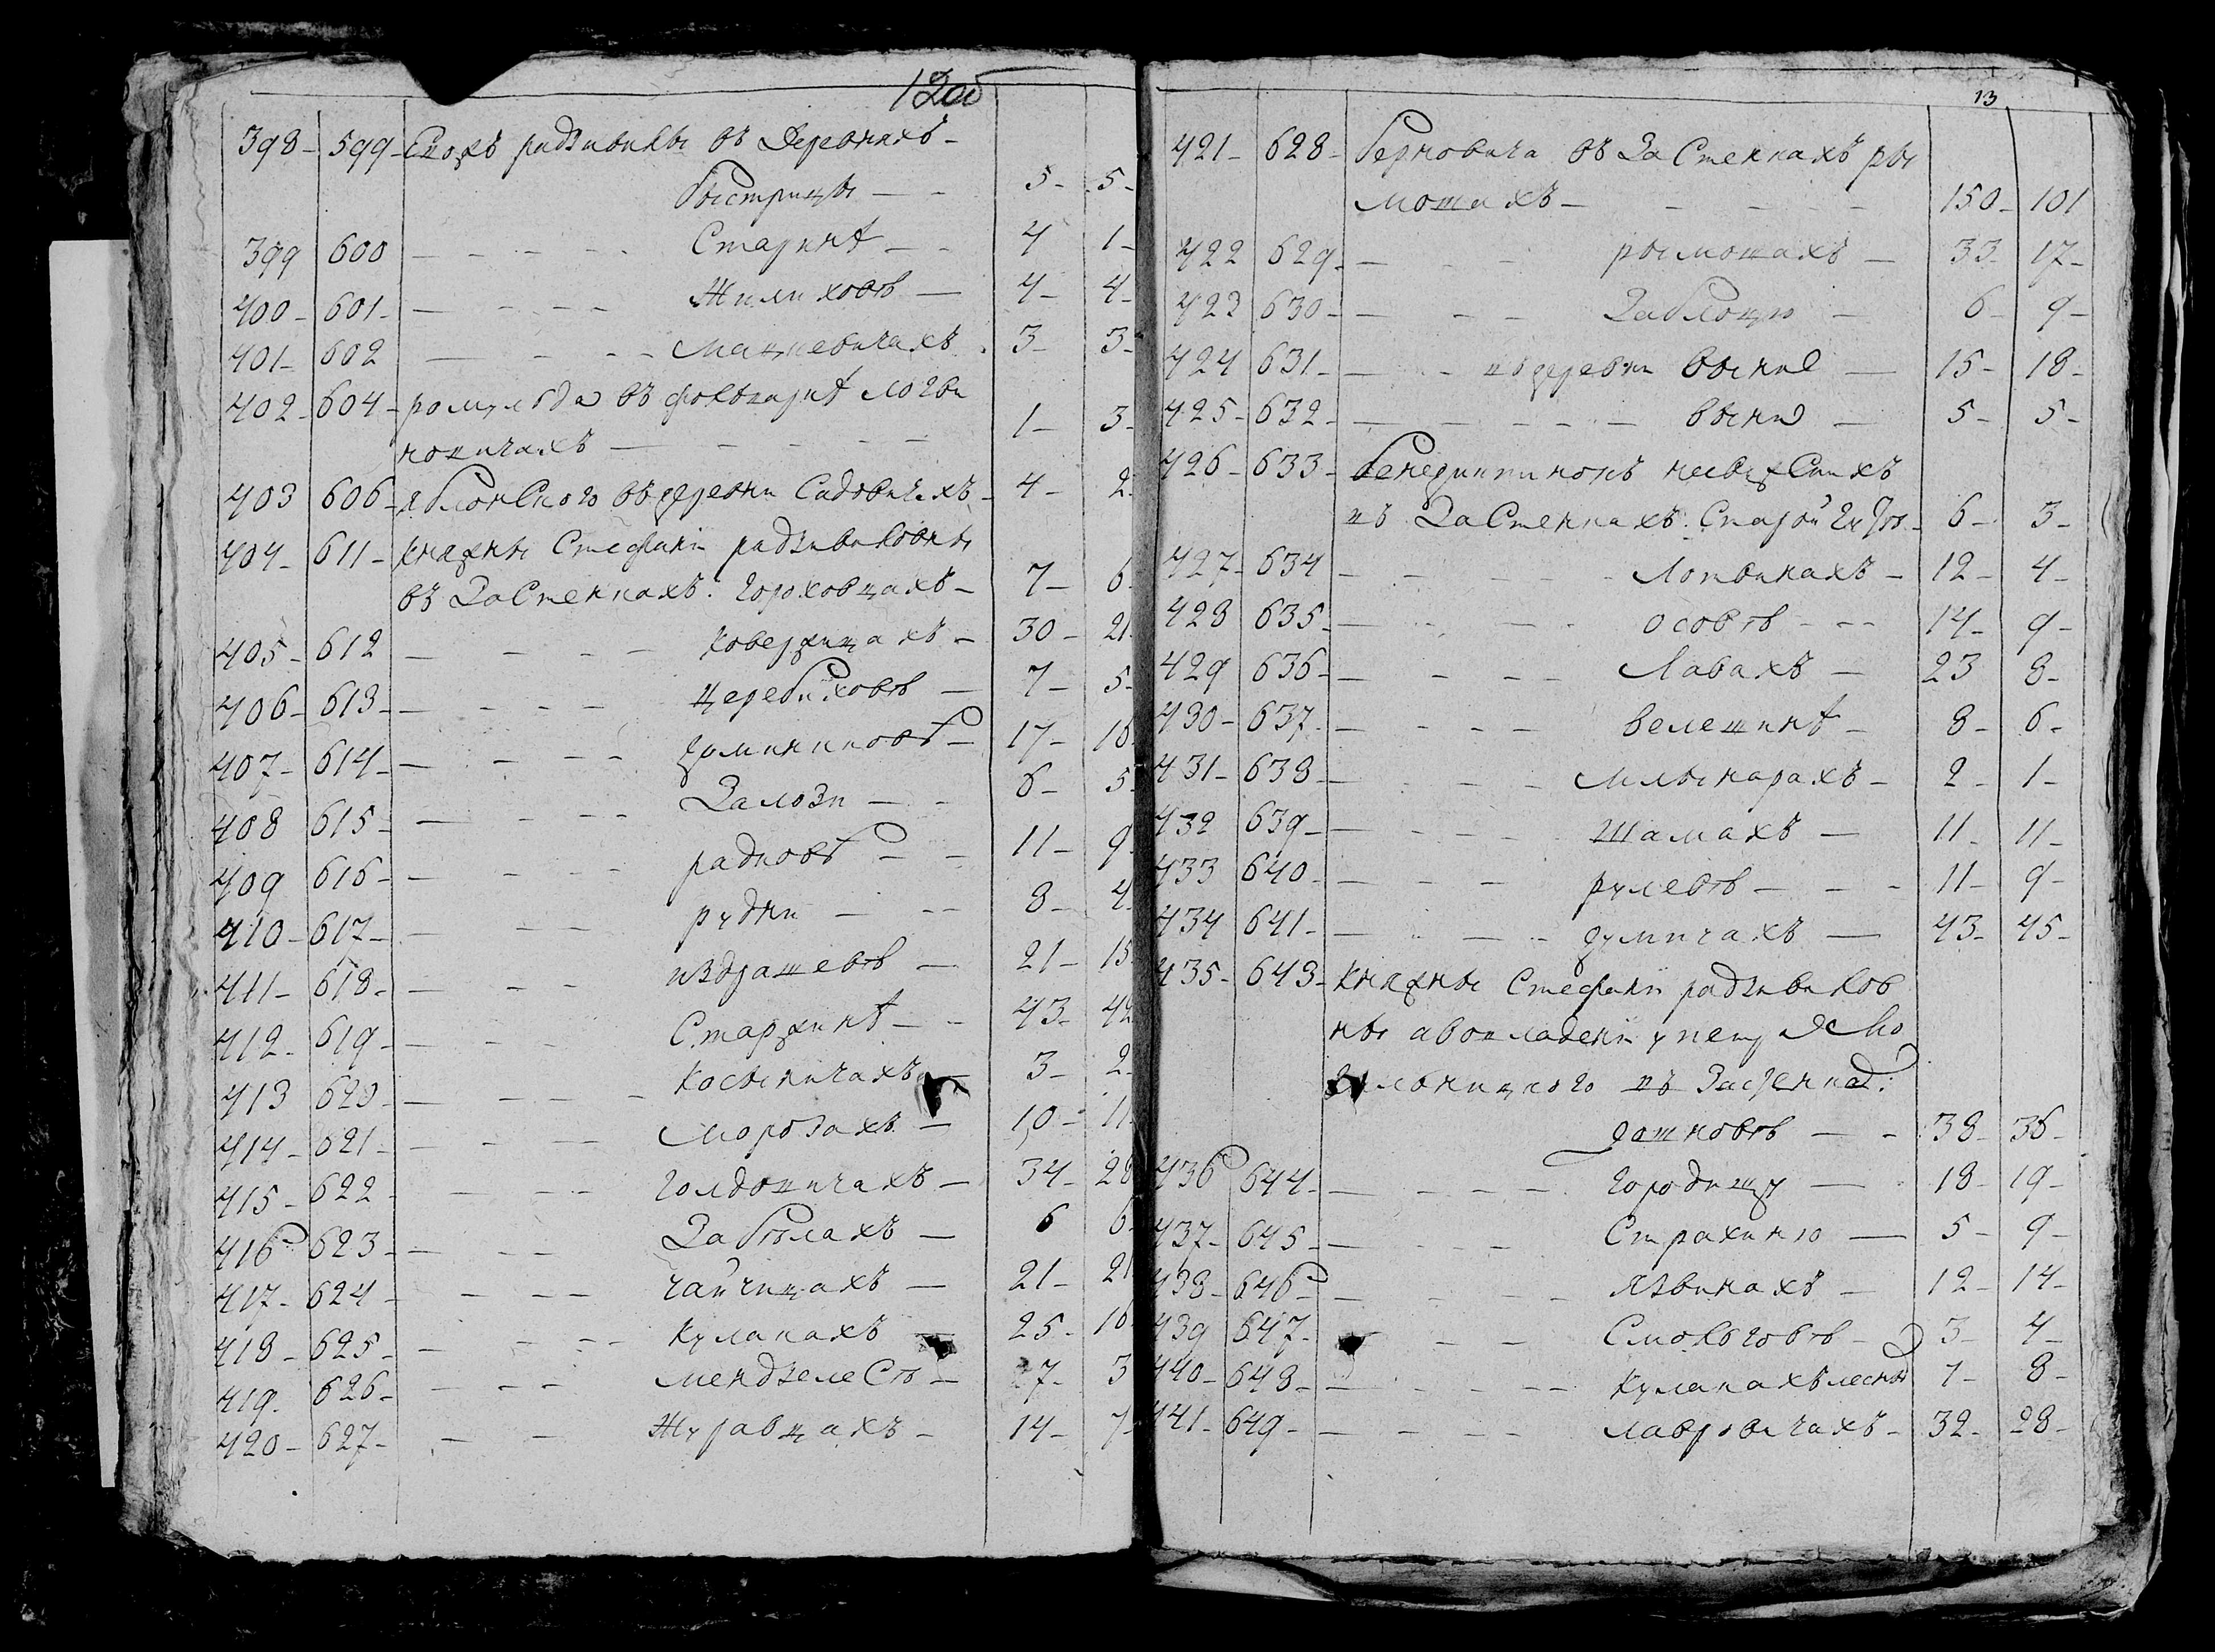 12об
398 - 599 - Ея жъ радзивилы въ Деревняхъ -
быстрицы - - 5 - 5 -
399 600 - - - - Старинѣ - - 4 1 -
400 - 601 - - - - - Жилиховѣ - 4 - 4 -
401 - 602 - - - - мацкевичахъ 3 - 3 -
402 - 604 - ромуальда въ фольваркѣ
- - - - - 1 - 3 -
403 606 - яблонскаго въ деревни Садовичахъ - 4 - 2
404 - 611 - княжны Стефаніи радзивиловны
въ Застенкахъ: гороховцахъ - 7 - 6
405 - 612 - - - - Ковержицахъ - 30 - 21
406 - 613 - - - - - церебиховѣ - 7 - 5 -
407 - 614 - - - - - 17 - 16
408 615 - - - - - Залози - - 6 - 5
409 616 - - - - - радковѣ - - 11 - 9
410 - 617 - - - - рудни - - - 8 - 4
411 - 618 - - - - издрашевѣ - 21 - 15
412 - 619 - - - - Старжинѣ - - 43 - 42
413 620 - - - - - Косыничахъ - 3 - 2 -
414 - 621 - - - - - морозахъ - 10 - 11
415 - 622 - - - - голдовичахъ - 34 - 28
416 623 - - - - Забѣлахъ - 6 6
417 - 624 - - - - - чайчицахъ - 21 - 21
418 - 625 - - - - - кулаках ъ - 25 - 16
419 - 626 - - - - мендзелеСѣ - 7 - 3
420 - 627 - - - Журавцахъ - 14 - 7 -
13
421 - 628 - въ ЗаСтенкахъ ры
мошахъ - - - - - 150 - 101
422 629 - - - - рымошахъ - 33 - 17 -
423 630 - - - - Заблоцю - 6 - 9 -
424 631 - - - въ деревни выни - 15 - 18 -
425 - 632 - - - - - - выни - 5 - 5 -
426 - 633 - бенедиктинокъ несвижСкихъ
въ ЗаСтенкахъ: Старой - 6 - 3 -
427 - 634 - - - - - Лотвинахъ - 12 - 4 -
428 635 - - - - - осовѣ - - - 14 - 9 -
429 636 - - - - - Лавахъ - 23 8 -
430 - 637 - - - - - велешинѣ - 8 - 6 -
431 - 638 - - - - млынарахъ - 2 - 1 -
432 639 - - - - - Шамахъ - 11 - 11 -
433 640 - - - - рулевѣ - - - 11 - 9 -
434 641 - - - - - думичахъ - 43 - 45 -
435 - 643 - княжны Стефаніи радзивилов
ны а во владеніи у
въ Застенкад:
дашковѣ - - 38 - 36 -
436 644 - - - - - городищу - 18 - 19 -
437 - 645 - - - - Страхиню - 5 - 9 -
438 - 646 - - - - - язвинахъ - 12 - 14 -
439 647 - - - - Смольговѣ - 3 - 4 -
440 - 648 - - - - - - кулакахъ 7 - 8 -
441 - 649 - - - - - лавровичахъ - 32 - 28 -